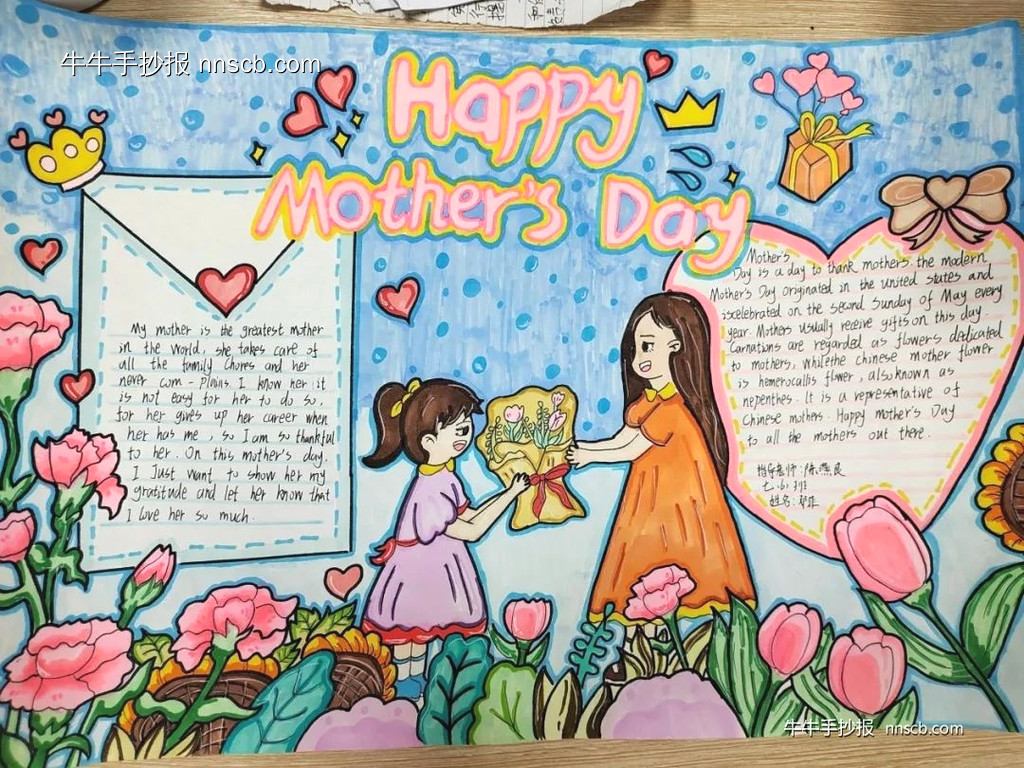 牛牛手抄报 nnscb.com
Happy
Mother's Day
My mother is the greatest mother
in the world, she takes care of
all the family chores and her
never com-plains. I know her it
is not easy for her to do so,
for her gives up her career when
her has me, so I am so thankful
to her. On this mother's day.
I Just want to show her my
gratitude and let her know that
I love her so much.
Mother's
Day is a day to thank mothers. the modern
Mother's Day originated in the united states and
iscelebrated on the second Sunday of May every
year. Mothers usually receive gifts on this day.
Carnations are regarded as flowers dedicated
to mothers, whilethe chinese mother flower
is hemerocallis flower, also known as
nepenthes. It is a representative of
Chinese mothers. Happy mother's Day
to all the mothers out there.
指导老师:陈燕良
七.(6)班
姓名:
牛牛手抄报 nnscb.com